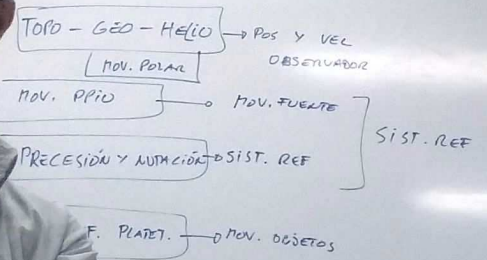 TOPO - GEO - HELIO → POS Y VEL
OBSERVADOR
MOV. POLAR
MOV. PPIO → MOV. FUENTE
SIST. REF
PRECESIÓN Y NUTACIÓN → SIST. REF
F. PLANET. → MOV. OBJETOS